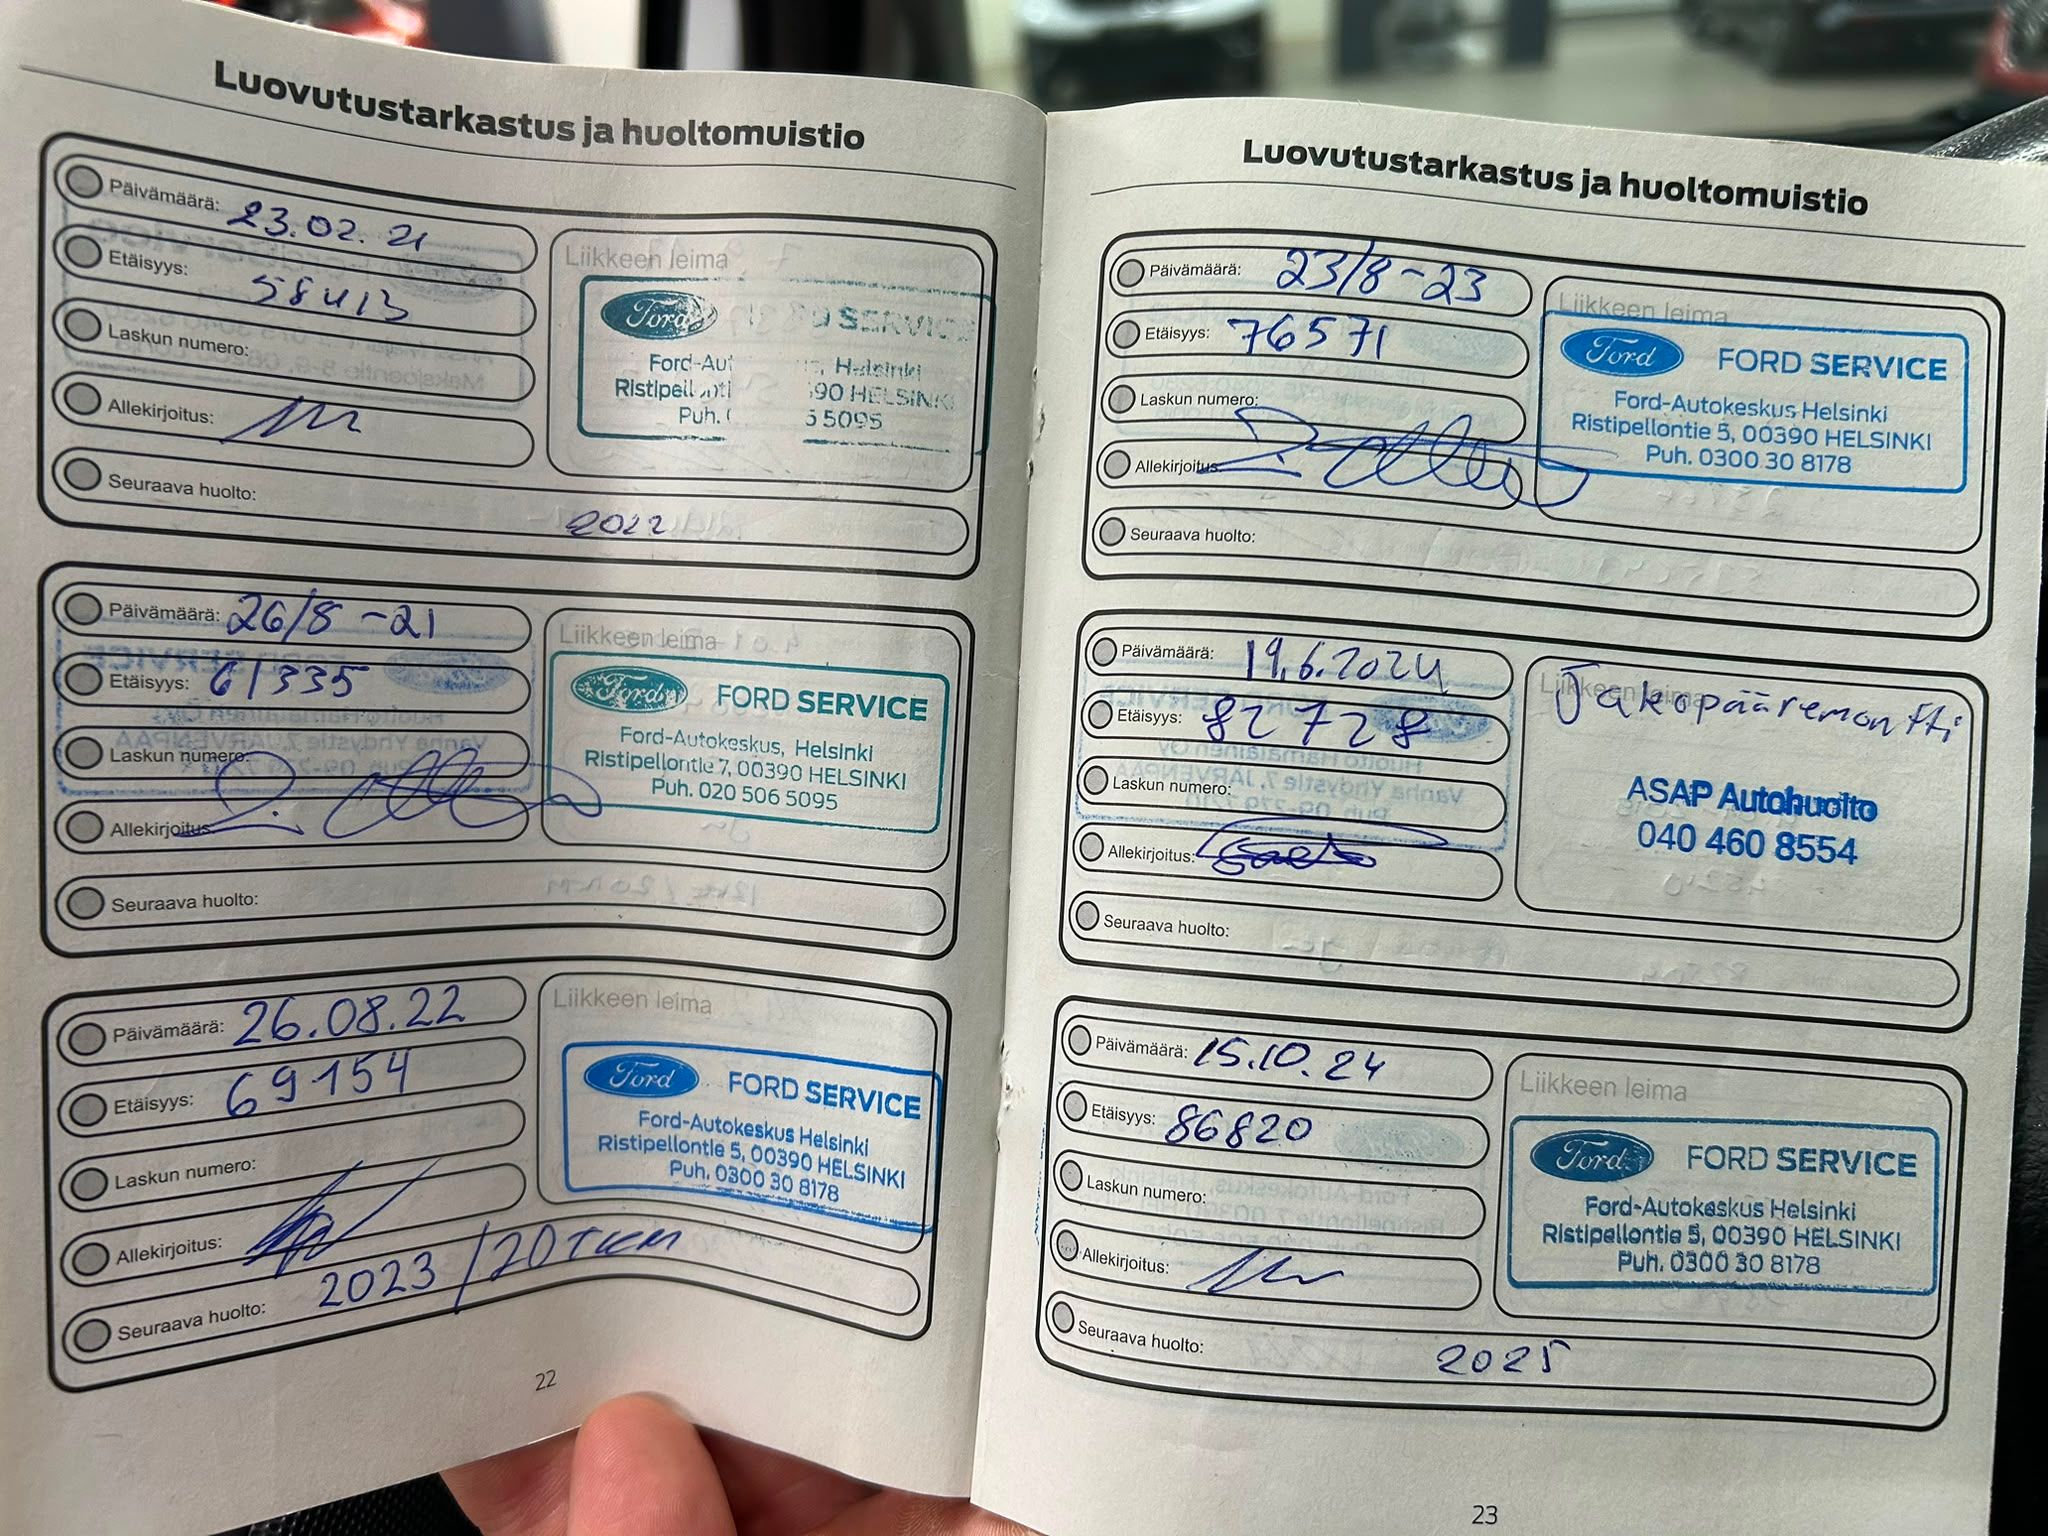 Luovutustarkastus ja huoltomuistio
Päivämäärä: 23.02.21
Etäisyys: 58413
Laskun numero:
Allekirjoitus:
Seuraava huolto: 2022
Liikkeen leima
Ford SERVICE
Ford-Aut , Helsinki
Ristipellonti 390 HELSINKI
Puh. 5 5095
Päivämäärä: 26/8 -21
Etäisyys: 61335
Laskun numero:
Allekirjoitus:
Seuraava huolto:
Liikkeen leima
Ford FORD SERVICE
Ford-Autokeskus, Helsinki
Ristipellontie 7, 00390 HELSINKI
Puh. 020 506 5095
Päivämäärä: 26.08.22
Etäisyys: 69154
Laskun numero:
Allekirjoitus:
Seuraava huolto: 2023 / 20 TKM
Liikkeen leima
Ford FORD SERVICE
Ford-Autokeskus Helsinki
Ristipellontie 5, 00390 HELSINKI
Puh. 0300 30 8178
22
Luovutustarkastus ja huoltomuistio
Päivämäärä: 23/8-23
Etäisyys: 76571
Laskun numero:
Allekirjoitus:
Seuraava huolto:
Liikkeen leima
Ford FORD SERVICE
Ford-Autokeskus Helsinki
Ristipellontie 5, 00390 HELSINKI
Puh. 0300 30 8178
Päivämäärä: 19.6.2024
Etäisyys: 82728
Laskun numero:
Allekirjoitus:
Seuraava huolto:
Liikkeen leima
Jakopääremontti
ASAP Autohuolto
040 460 8554
Päivämäärä: 15.10.24
Etäisyys: 86820
Laskun numero:
Allekirjoitus:
Seuraava huolto: 2025
Liikkeen leima
Ford FORD SERVICE
Ford-Autokeskus Helsinki
Ristipellontie 5, 00390 HELSINKI
Puh. 0300 30 8178
23